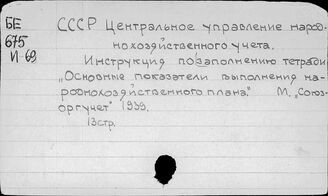 БЕ
675
И-69
СССР Центральное управление народ-
нохозяйственного учета.
Инструкция по заполнению тетради
„Основные показатели выполнения на-
роднохозяйственного плана." М., „Союз-
оргучет" 1939.
13стр.